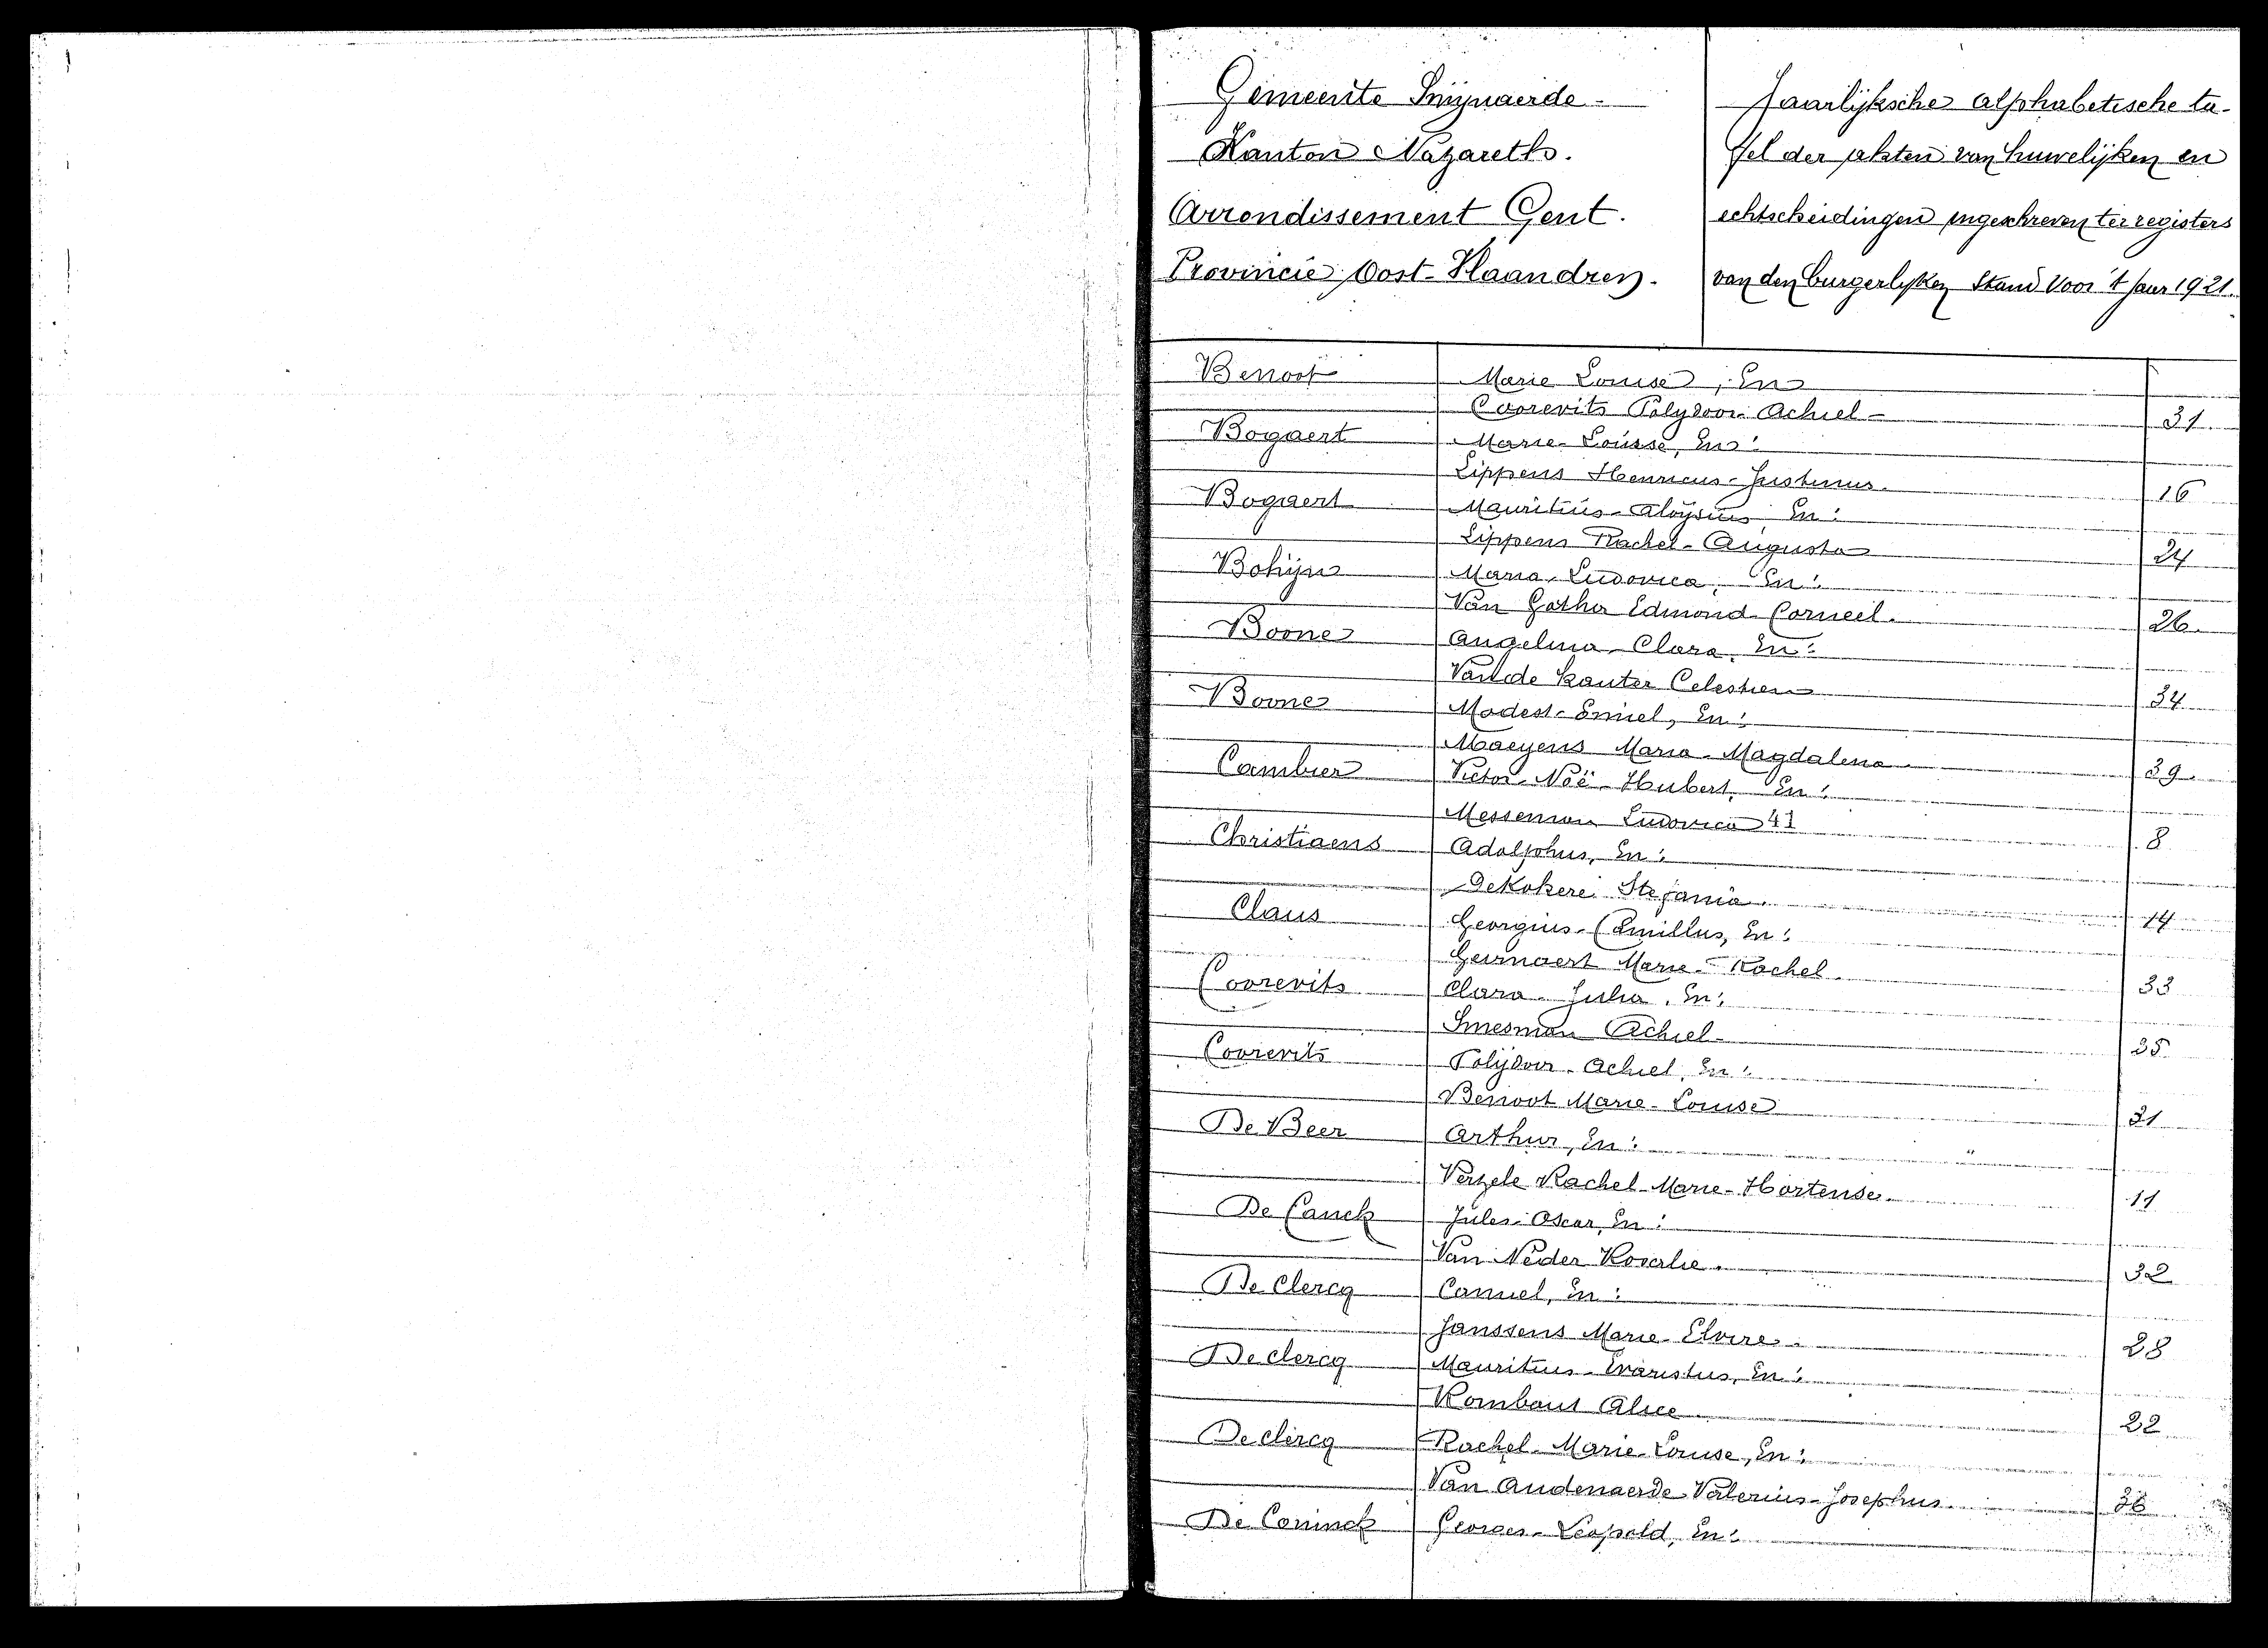 Gemeente Smijnaerde
Kanton Nazareth.
Arrondissement Gent.
Provincie Oost-Vlaandren.
Jaarlijksche alphabetische ta-
fel der akten van huwelijken en
echtscheidingen ingeschreven ter registers
van den burgerlijken Stand voor 't jaar 1921.
Benoot Marie Louise, En
Coorevits Polydoor Achiel 31
Bogaert Marie-Louise, En:
Lippens Henricus-Justinus 16
Bogaert Mauritius-Aloysius En:
Lippens Rachel-Augusta 24
Bohijn Maria-Ludovica, En:
Van Gothe Edmond-Corneel. 26
Boone Angelina-Clara, En:
Van de Kauter Celestien 34
Boone Modest-Emiel, En:
Maeyens Maria-Magdalena 39
Cambier Victor-Noë-Hubert, En:
Messeman Ludovica 8
Christiaens Adolphus, En:
DeKokere Stefania. 14
Claus Georgius-Camillus, En:
Geirnaert Marie-Rachel 33
Coorevits Clara-Julia, En:
Smesman Achiel 35
Coorevits Polijdoor-Achiel, En:
Benoot Marie-Louise 31
De Beer Arthur, En:
Verzele Rachel-Marie-Hortense 11
De Canck Jules-Oscar, En:
Van Neder Rosalie. 32
De Clercq Camiel, En:
Janssens Marie-Elvire 28
De clercq Mauritius-Evaristus, En:
Rombaut Alice 22
De clercq Rachel-Marie-Louise, En:
Van Audenaerde Valerius-Josephus 36
De Coninck Georges-Leopold, En: